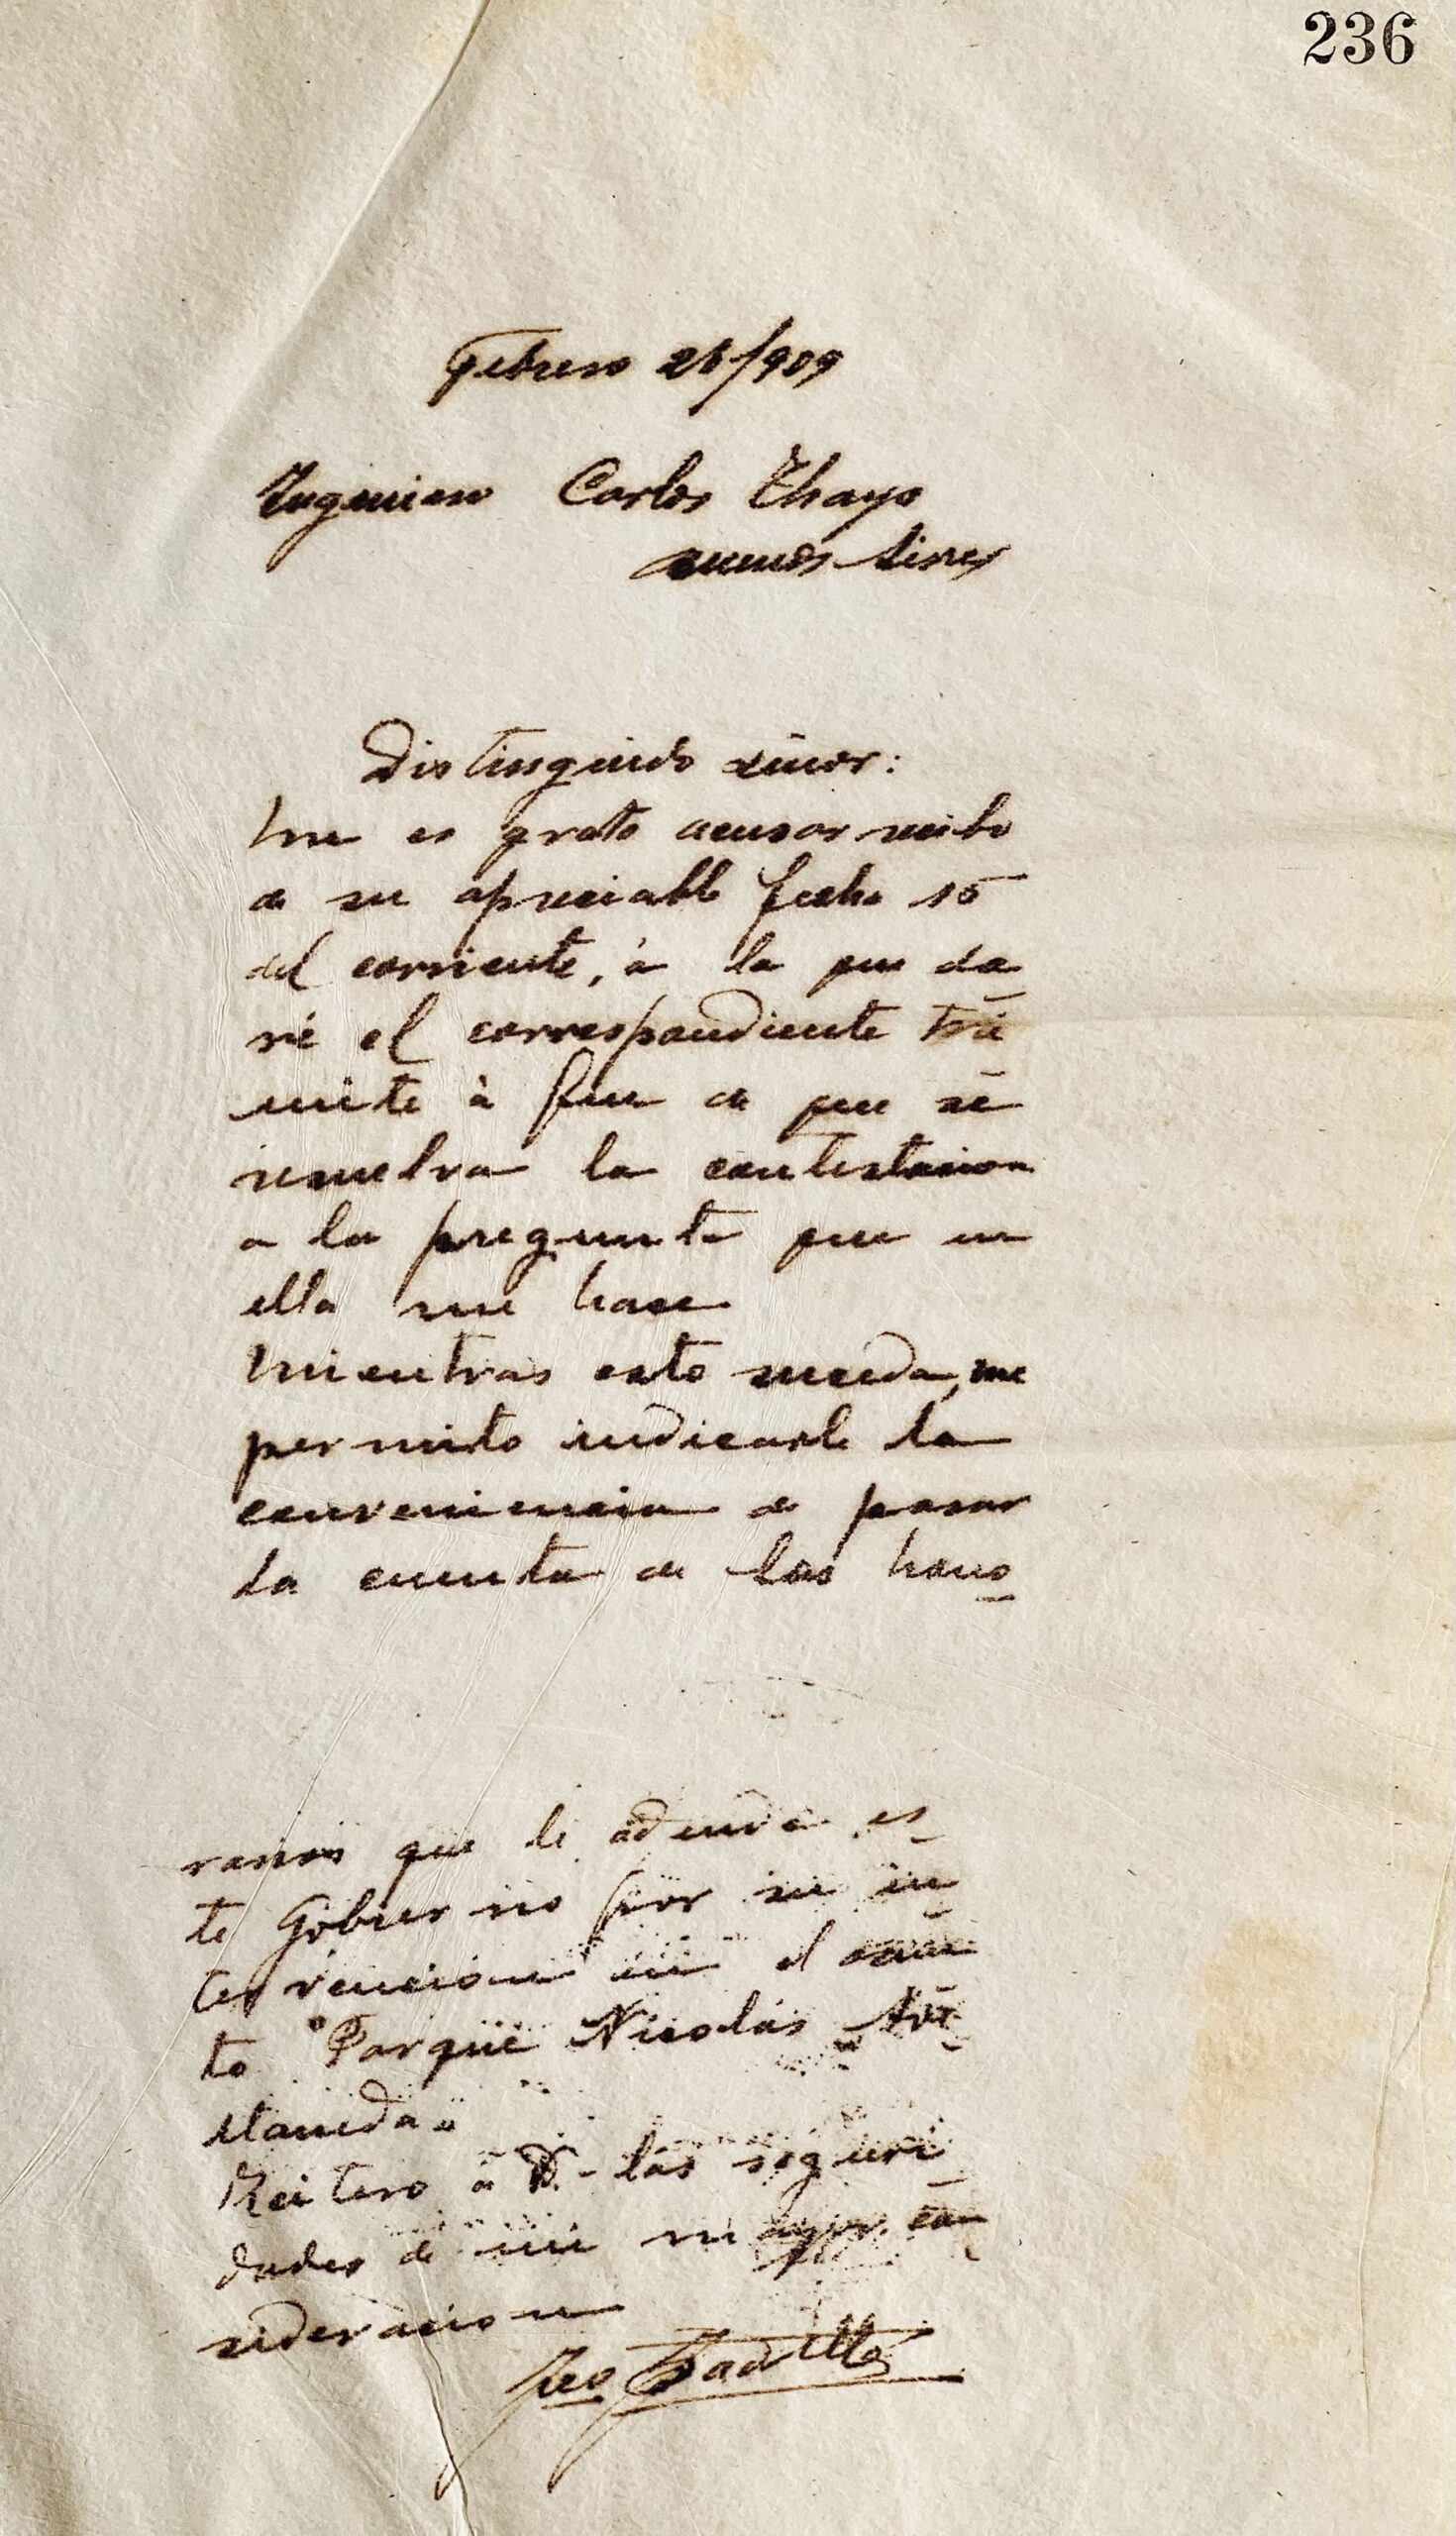 236
Febrero 26/909
Ingeniero Carlos Thays
Buenos Aires
Distinguido señor:
Me es grato acusar recibo
de su apreciable fecha 15
del corriente, á la que da
ré el correspondiente trá
mite á fin de que se
resuelva la contestacion
a la pregunta que en
ella me hace
Mientras esto suceda, me
permito indicarle la
conveniencia de pasar
la cuenta de los hono
rarios que le adeuda es
te Gobierno por su in
tervencion en el asun
to "Parque Nicolás Ave
llaneda"
Reitero á Vd. las seguri
dades de mi mayor con
sideracion
José Padilla